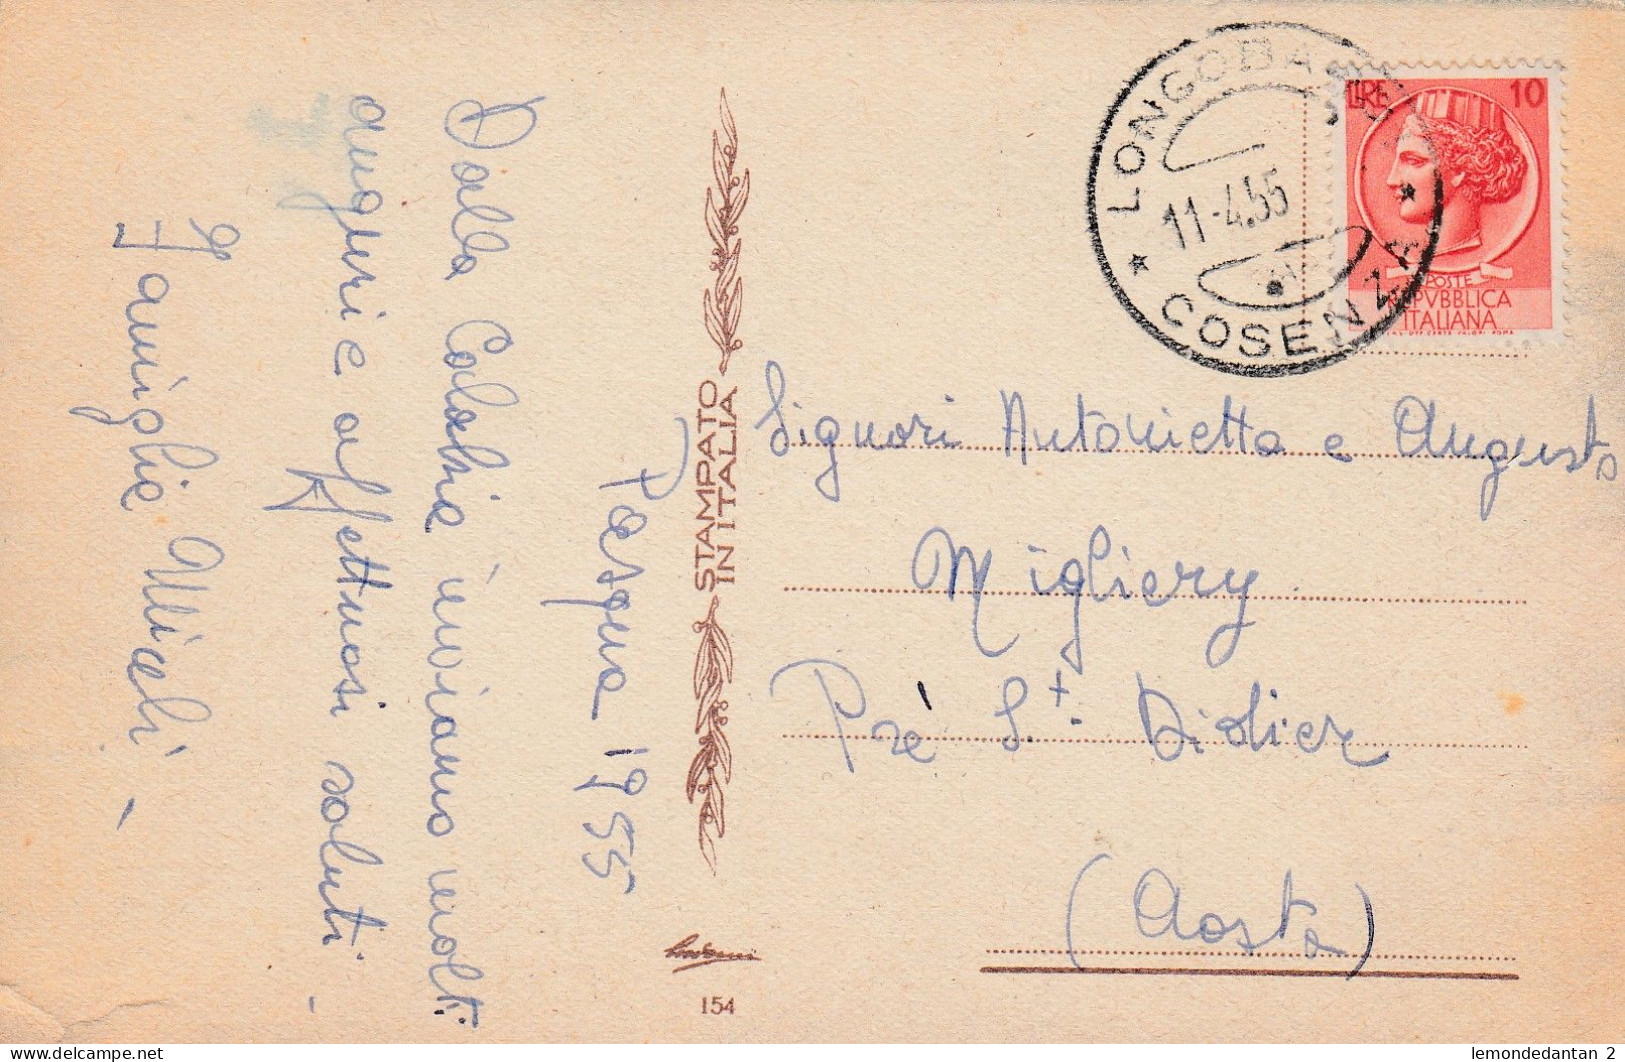 Pasqua 1955
Dalla Calabria inviamo molti
auguri e affettuosi saluti -
Famiglia Miceli -
STAMPATO
IN ITALIA
154
LONGOBARDI
COSENZA
11-4.55
LIRE 10
POSTE
REPVBBLICA
ITALIANA
Signori Antonietta e Augusto
Migliery
Pré S.t Didier
(Aosta)
lemondedantan 2